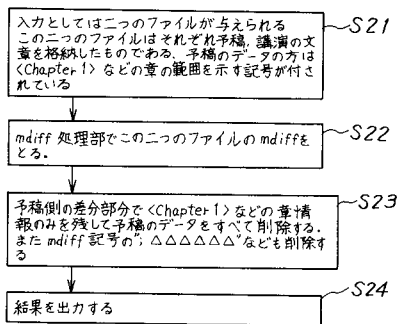 入力としては二つのファイルが与えられる S21
この二つのファイルはそれぞれ予稿,講演の文
章を格納したものである.予稿のデータの方は
<Chapter 1>などの章の範囲を示す記号が付さ
れている
mdiff 処理部でこの二つのファイルのmdiffを S22
とる.
予稿側の差分部分で<Chapter 1>などの章情 S23
報のみを残して予稿のデータをすべて削除する.
また mdiff 記号の"; △△△△△△"なども削除す
る
結果を出力する S24